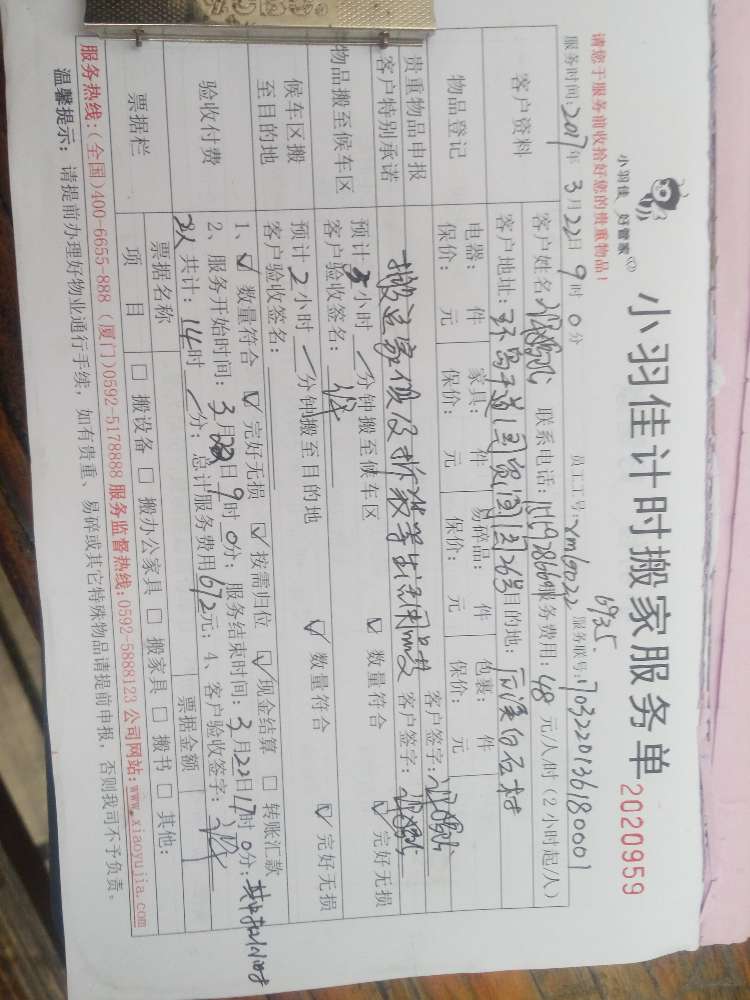 小羽佳 好管家
小羽佳计时搬家服务单 2020959
6925.
请您于服务前收拾好您的贵重物品！
服务时间：2017年3月22日9时0分 员工工号：xm6022 服务联号：703220136180001
客户资料
客户姓名： 联系电话： 服务费用：48元/人/时（2小时起/人）
客户地址：环岛干道国贸 26号 目的地：后溪白石村
物品登记
电器： 件 家具： 件 易碎品： 件 包裹： 件
保价： 元 保价： 元 保价： 元 保价： 元
贵重物品申报 客户签字：
客户特别承诺 搬运家俱及拆装等生活用品 客户签字：
物品搬至候车区
预计 小时 分钟搬至候车区 ☑ 数量符合 ☑ 完好无损
客户验收签名：
候车区搬至目的地
预计2小时 分钟搬至目的地 ☑ 数量符合 ☑ 完好无损
客户验收签名：
验收付费
1、☑ 数量符合 ☑ 完好无损 ☑ 按需归位 ☑ 现金结算 □ 转账汇款
2、服务开始时间：3月22日9时0分；服务结束时间：3月22日17时0分；
2人共计：14时 分；总计服务费用672元；4、客户验收签字：
票据栏
票据名称 票据金额
项目 □ 搬设备 □ 搬办公家具 □ 搬家具 □ 搬书 □ 其他：
服务热线：(全国)400-6655-888 (厦门)0592-5178888 服务监督热线：0592-5888123 公司网站：www.xiaoyujia.com
温馨提示：请提前办理好物业通行手续，如有贵重、易碎或其它特殊物品请提前申报，否则我司不予负责。